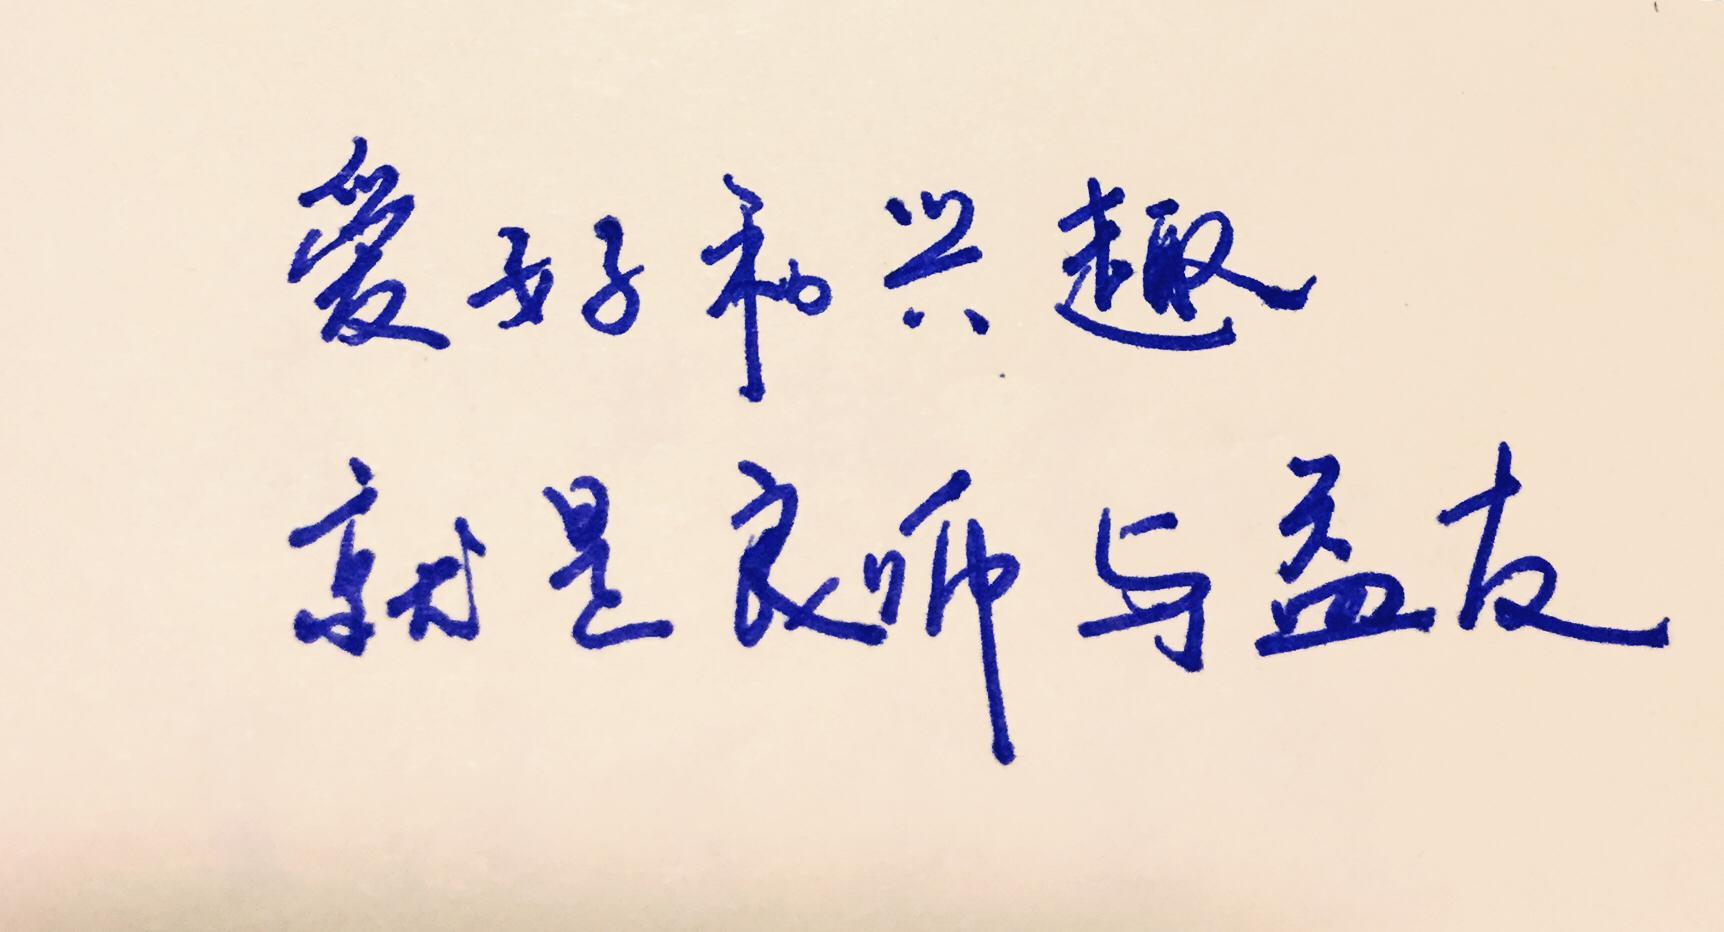 爱好和兴趣
就是良师与益友